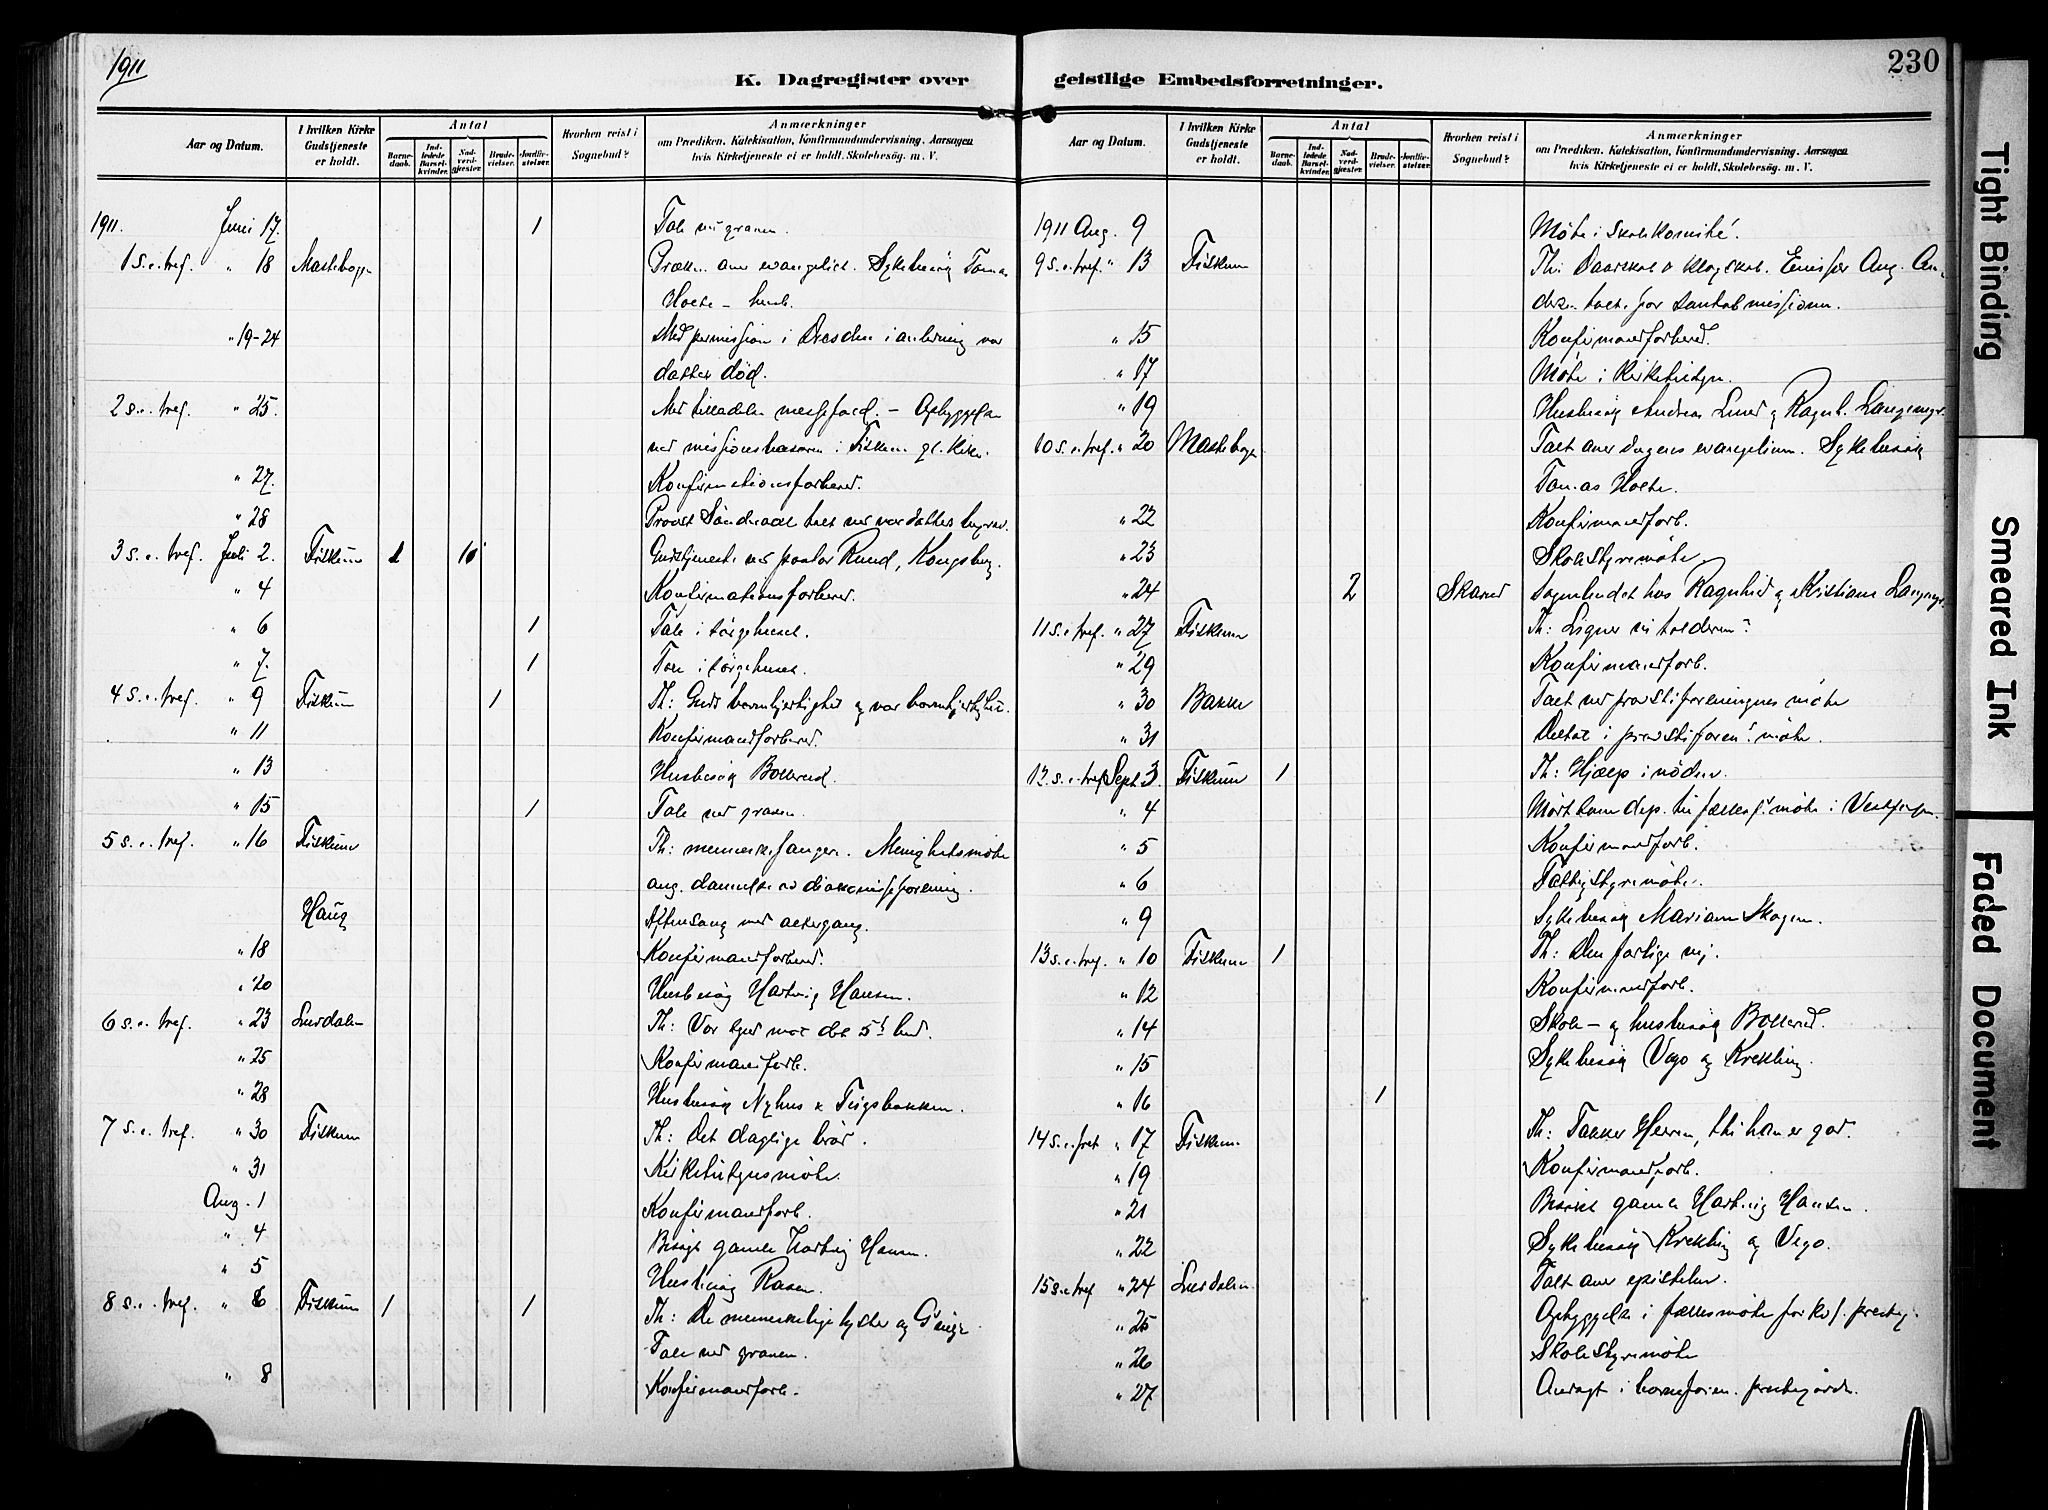 1911
230
K. Dagregister over geistlige Embedsforretninger.
Aar og Datum. I hvilken Kirke Gudstjeneste er holdt. Antal Barnedaab. Indledede Barselkvinder. Nadverdgjæster. Brudevielser. Jordfæstelser. Hvorhen reist i Sognebud? Anmærkninger om Prædiken, Katekisation, Konfirmandundervisning, Aarsagen hvis Kirketjeneste ei er holdt, Skolebesøg. m. V.
1911. Juni 17. 1 Tale ved graven.
1 S. e. tref. " 18 Præken over evangeliet. Sykebesøg Tomas
Holte
" 19-24 Med permission i Dresden i anledning vor
datter død.
2 s. e. tref. " 25. Med tilladelse messefald. – Opbyggelse
ved missionsbasaren i Fiskum gl. kirke.
" 27. Konfirmationsforbered.
" 28 Provst talt ved vor datters begrav.
3 s. e. tref. Juli 2. Fiskum 1 10 Gudstjeneste ved pastor Ruud, Kongsberg.
" 4 Konfirmationsforbered.
" 6 1 Tale i sørgehuset.
" 7. 1 Tale i sørgehuset.
4 s. e. tref. " 9 Fiskum 1 Th: Guds barmhjertighet og vor barmhjertighet.
" 11 Konfirmandforbered.
" 13 Husbesøg Bollerud.
" 15 1 Tale ved graven.
5 s. e. tref. " 16 Fiskum Th: menneskefangere. Menighetsmøte
ang. dannelse av diakonisseforening.
Haug Aftensang med altergang.
" 18 Konfirmandforbered.
" 20 Husbesøg Hartvig Hansen.
6 s. e. tref. " 23 Lurdalen Th: Vor synd mot det 5te bud.
" 25 Konfirmandforb.
" 28 Husbesøg Nyhus &
7 s. e. tref. " 30 Fiskum Th: Det daglige brød.
" 31 Kirketilsynsmøte.
Aug. 1 Konfirmandforb.
" 4 Besøgt gamle Hartvig Hansen.
" 5 Husbesøg
8 s. e. tref. " 6 Fiskum 1 1 Th: De menneskelige lyster og
Tale ved graven.
" 8 Konfirmandforb.
Aar og Datum. I hvilken Kirke Gudstjeneste er holdt. Antal Barnedaab. Indledede Barselkvinder. Nadverdgjæster. Brudevielser. Jordfæstelser. Hvorhen reist i Sognebud? Anmærkninger om Prædiken, Katekisation, Konfirmandundervisning, Aarsagen hvis Kirketjeneste ei er holdt, Skolebesøg. m. V.
1911 Aug. 9 Møte i skolekomité.
9 s. e. tref. " 13 Fiskum Th: Daarskab & klogskab. Emissær Aug. An-
dersen talte for Santalmissionen.
" 15 Konfirmandforbered.
" 17 Møte i kirketilsyn.
" 19 Husbesøg Andreas Lund og Ragnh.
10 s. e. tref. " 20 Talt over dagens evangelium. Sykebesøk
Tomas Holte.
" 22 Konfirmandforb.
" 23 Skolestyremøte
" 24 2 Sognebudet hos Ragnhild og Kristiane
11 s. e. tref. " 27 Fiskum Th: Ligner vi tolderen?
" 29 Konfirmandforb.
" 30 Bakke Talt ved provstiforeningens møte
" 31 Deltat i provstiforen.s møte.
12. s. e. tref. Sept. 3 Fiskum 1 Th: Hjælp i nøden.
" 4 Møtt som dep. til fællesf. møte i Vestfossen.
" 5 Konfirmandforb.
" 6 Fattigstyremøte.
" 9 Sykebesøg Mariann Skogen.
13 s. e. tref. " 10 Fiskum 1 Th: Den farlige vej.
" 12 Konfirmandforb.
" 14 Skole- og husbesøg Bollerud.
" 15 Sykebesøg Vego og Krekling
" 16 1
14 s. e. tref " 17 Fiskum. Th: Takker Herren, thi han er god.
" 19 Konfirmandforb.
" 21 Besøkt gamle Hartvig Hansen.
" 22 Sykebesøg Krekling og Vego.
15 s. e. tref " 24 Lurdalen Talt over epistelen.
" 25 Opbyggelse i fællesmøte for
" 26 Skolestyremøte
" 27 Andagt i prestegården.
Tight Binding
Smeared Ink
Faded Document